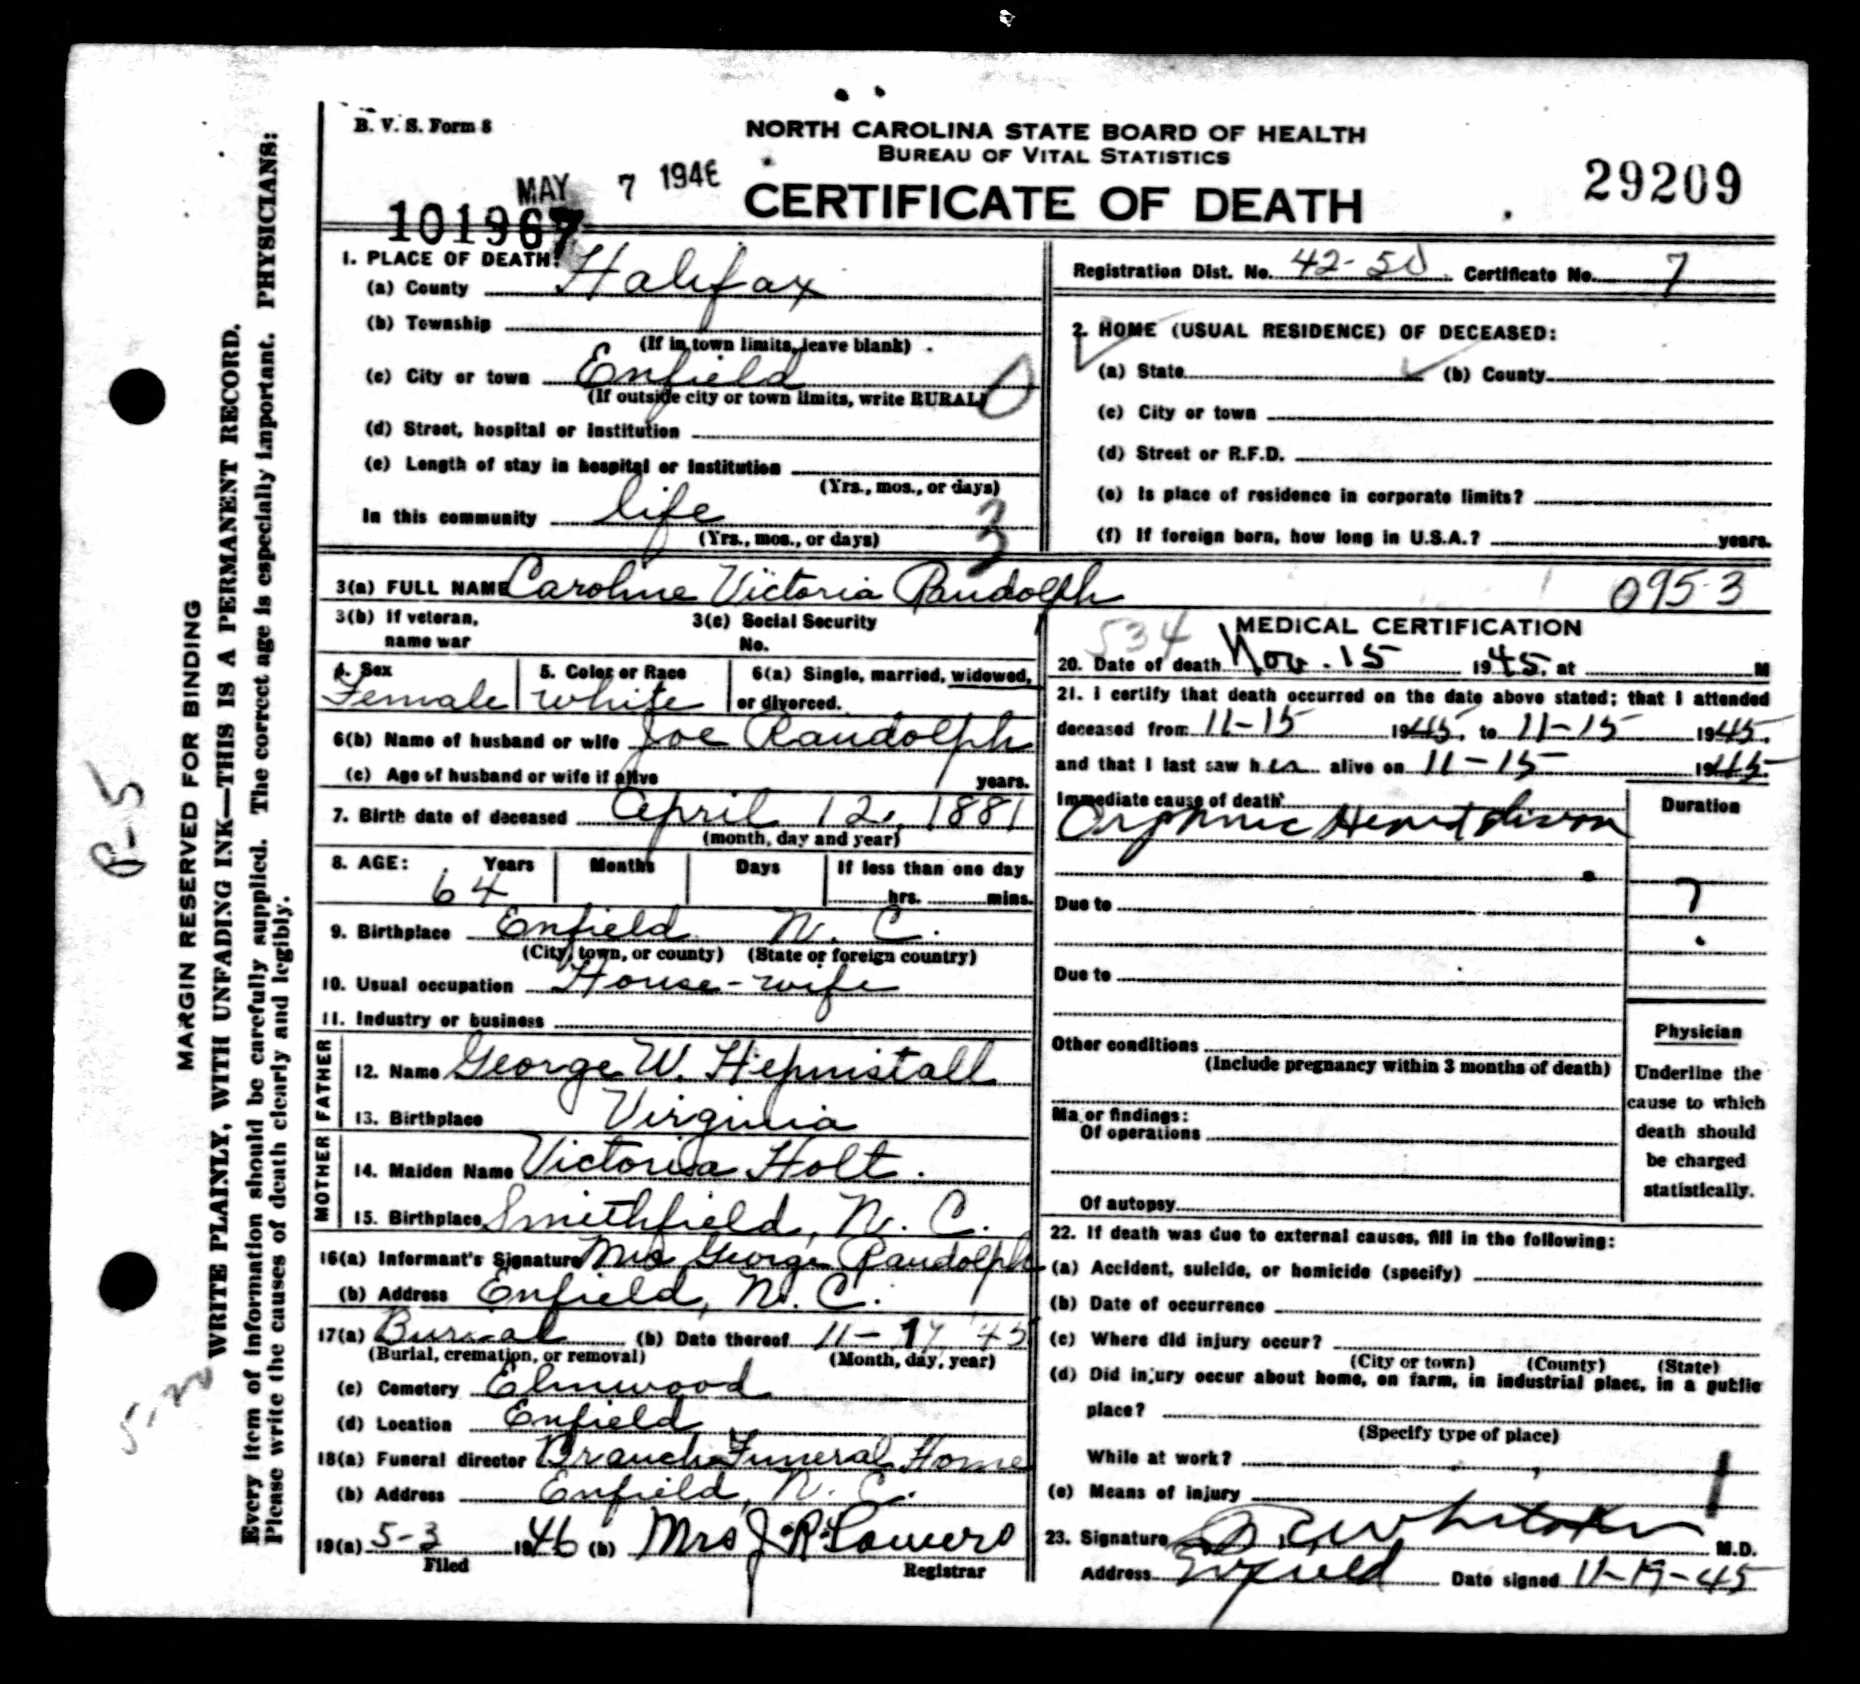 B. V. S. Form 8
NORTH CAROLINA STATE BOARD OF HEALTH
BUREAU OF VITAL STATISTICS
MAY 7 1946
CERTIFICATE OF DEATH
29209
101967
MARGIN RESERVED FOR BINDING
WRITE PLAINLY, WITH UNFADING INK—THIS IS A PERMANENT RECORD.
Every item of information should be carefully supplied. The correct age is especially important. PHYSICIANS:
Please write the causes of death clearly and legibly.
1. PLACE OF DEATH:
(a) County Halifax
(b) Township
(If in town limits, leave blank)
(c) City or town Enfield 0
(If outside city or town limits, write RURAL)
(d) Street, hospital or institution
(e) Length of stay in hospital or institution
(Yrs., mos., or days)
In this community life 3
(Yrs., mos., or days)
Registration Dist. No. 42-50 Certificate No. 7
2. HOME (USUAL RESIDENCE) OF DECEASED:
(a) State (b) County
(c) City or town
(d) Street or R.F.D.
(e) Is place of residence in corporate limits?
(f) If foreign born, how long in U.S.A.? years.
3(a) FULL NAME Caroline Victoria Randolph 095-3
3(b) If veteran, name war
3(c) Social Security No.
4. Sex Female
5. Color or Race white
6(a) Single, married, widowed, or divorced.
6(b) Name of husband or wife Joe Randolph
(c) Age of husband or wife if alive years.
7. Birth date of deceased April 12, 1881
(month, day and year)
8. AGE: Years Months Days If less than one day
64 hrs. mins.
9. Birthplace Enfield N. C.
(City, town, or county) (State or foreign country)
10. Usual occupation House-wife
11. Industry or business
FATHER
12. Name George W. Hepinstall
13. Birthplace Virginia
MOTHER
14. Maiden Name Victoria Holt.
15. Birthplace Smithfield, N. C.
16(a) Informant's Signature Mrs George Randolph
(b) Address Enfield, N. C.
17(a) Burial (b) Date thereof 11-17 45
(Burial, cremation, or removal) (Month, day, year)
(c) Cemetery Elmwood
(d) Location Enfield
18(a) Funeral director Branch Funeral Home
(b) Address Enfield, N. C.
19(a) 5-3 1946 (b) Mrs J. R.
Filed Registrar
534 MEDICAL CERTIFICATION
20. Date of death Nov. 15 1945, at M
21. I certify that death occurred on the date above stated; that I attended
deceased from 11-15 1945, to 11-15 1945,
and that I last saw her alive on 11-15 1945.
Immediate cause of death
Duration
7
Due to
Due to
Other conditions
(Include pregnancy within 3 months of death)
Major findings:
Of operations
Of autopsy
Physician
Underline the
cause to which
death should
be charged
statistically.
22. If death was due to external causes, fill in the following:
(a) Accident, suicide, or homicide (specify)
(b) Date of occurrence
(c) Where did injury occur?
(City or town) (County) (State)
(d) Did injury occur about home, on farm, in industrial place, in a public
place?
(Specify type of place)
While at work?
(e) Means of injury
23. Signature Whitaker M.D.
Address Enfield Date signed 11-19-45